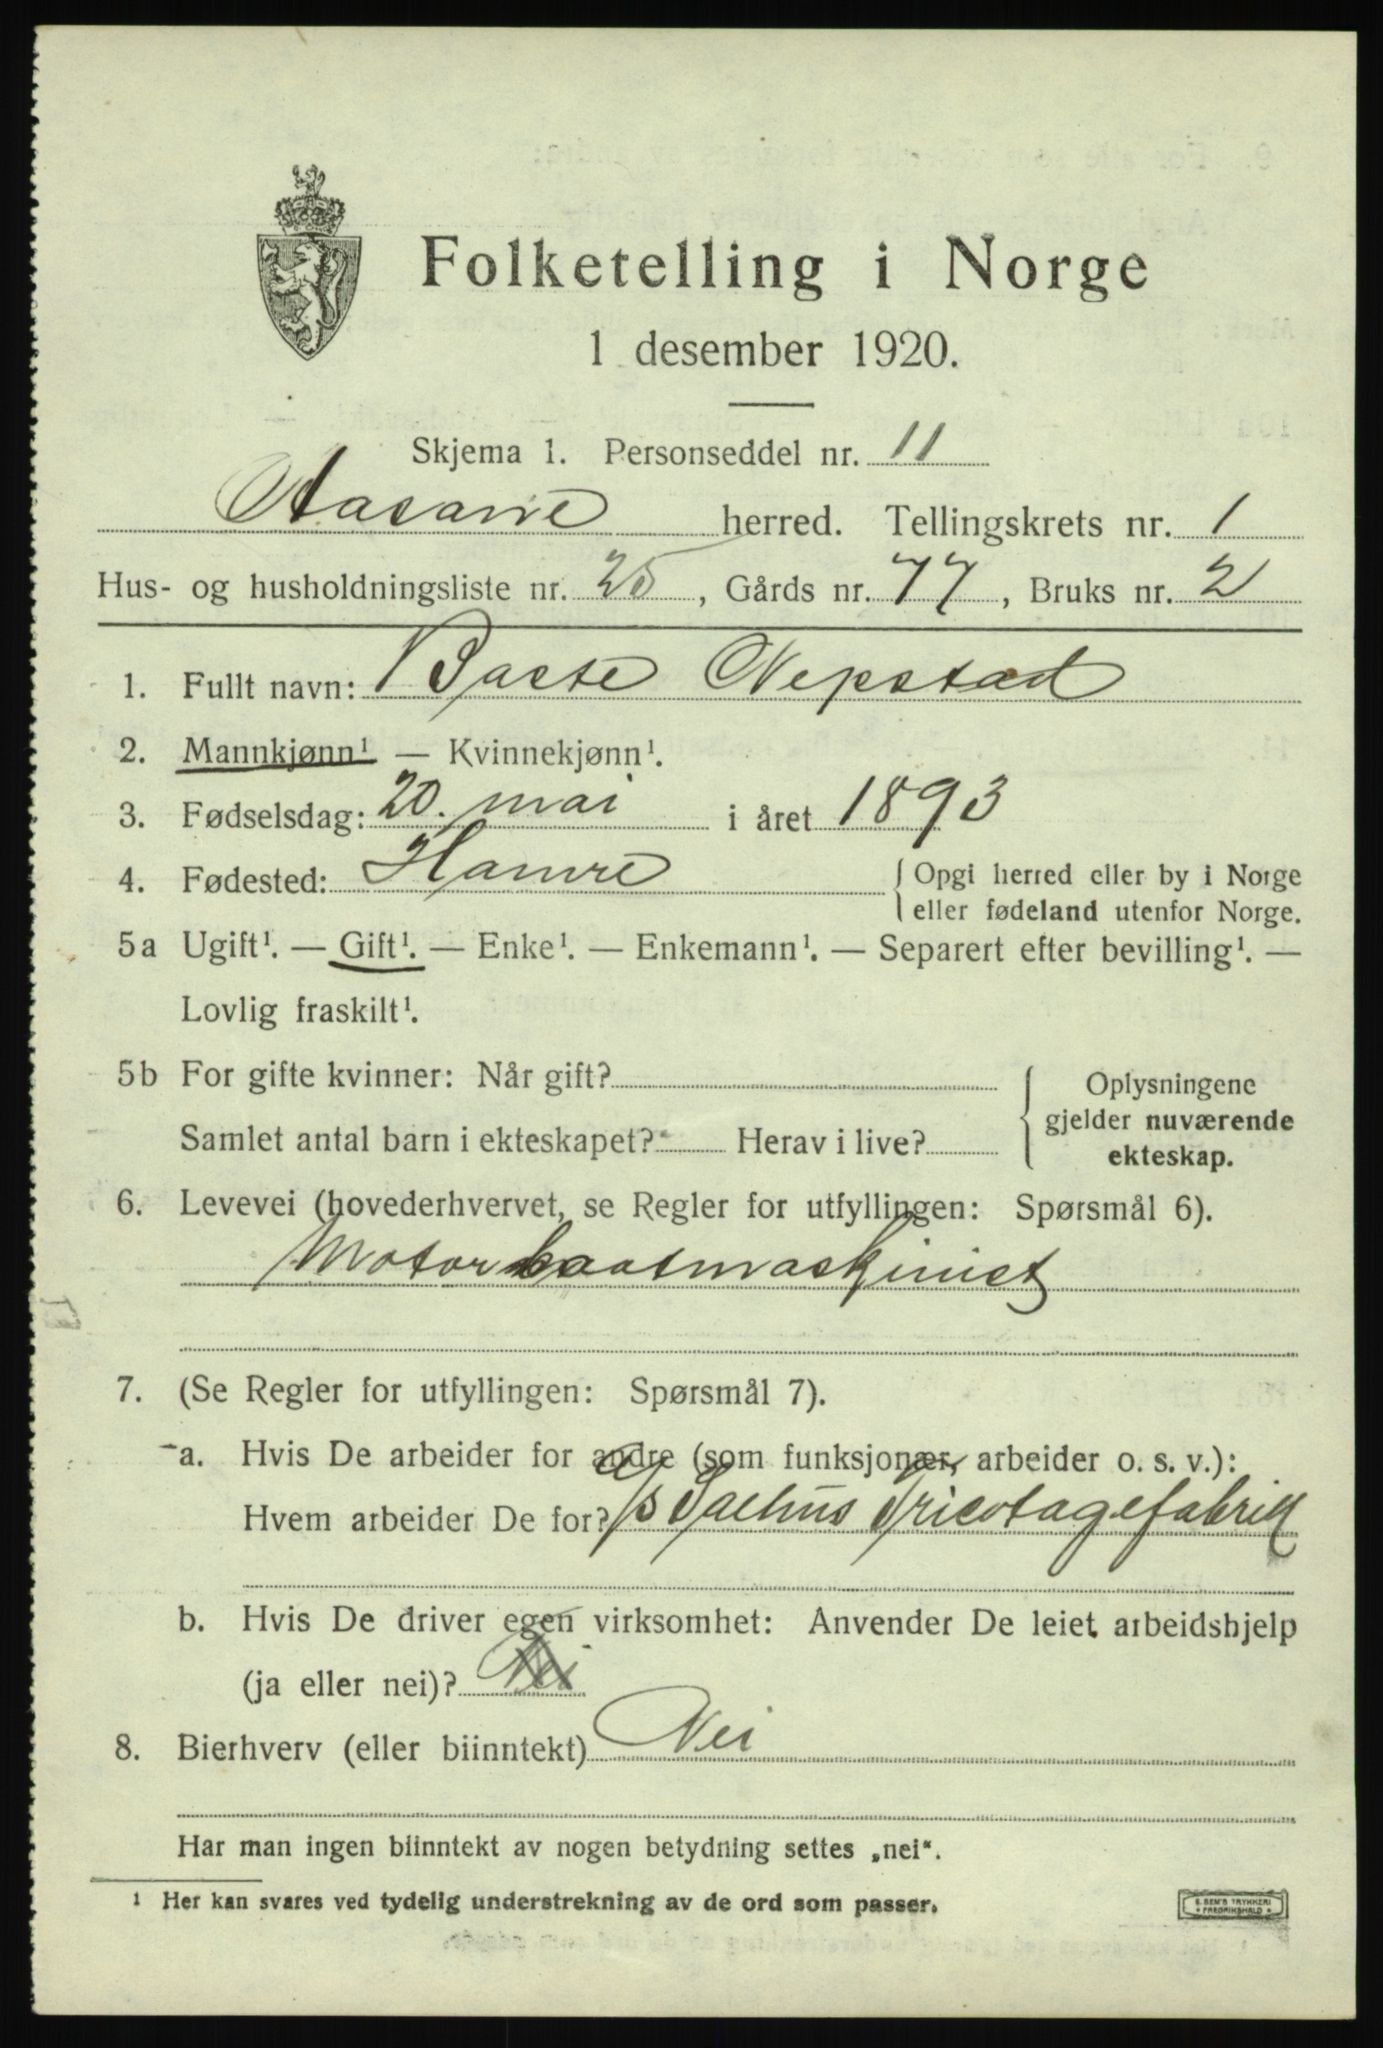 Folketelling i Norge
1 desember 1920.
Skjema 1. Personseddel nr. 11
Aasane herred. Tellingskrets nr. 1
Hus- og husholdningsliste nr. 25, Gårds nr. 77, Bruks nr. 2
1. Fullt navn: Baste Nepstad
2. Mannkjønn¹ — Kvinnekjønn¹.
3. Fødselsdag: 20. mai i året 1893
4. Fødested: Hamre { Opgi herred eller by i Norge
eller fødeland utenfor Norge.
5a Ugift¹. — Gift¹. — Enke¹. — Enkemann¹. — Separert efter bevilling¹. —
Lovlig fraskilt¹.
5b For gifte kvinner: Når gift? { Oplysningene
gjelder nuværende
Samlet antal barn i ekteskapet? Herav i live? ekteskap.
6. Levevei (hovederhvervet, se Regler for utfyllingen: Spørsmål 6).
Motorbaatmaskinist
7. (Se Regler for utfyllingen: Spørsmål 7).
a. Hvis De arbeider for andre (som funksjonær, arbeider o. s. v.):
Hvem arbeider De for? A/S Salhus Tricotagefabrik
b. Hvis De driver egen virksomhet: Anvender De leiet arbeidshjelp
(ja eller nei)? Nei
8. Bierhverv (eller biinntekt) Nei
Har man ingen biinntekt av nogen betydning settes „nei“.
¹ Her kan svares ved tydelig understrekning av de ord som passer.
E. SEM'S TRYKKERI
• FREDRIKSHALD •